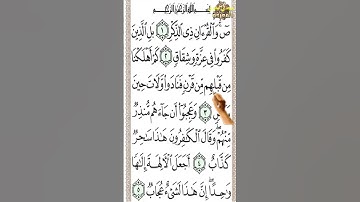 بسم الله الرحمن الرحيم
صٓ ۚ وَٱلْقُرْءَانِ ذِى ٱلذِّكْرِ ۝١ بَلِ ٱلَّذِينَ
كَفَرُوا۟ فِى عِزَّةٍ وَشِقَاقٍ ۝٢ كَمْ أَهْلَكْنَا
مِن قَبْلِهِم مِّن قَرْنٍ فَنَادَوا۟ وَّلَاتَ حِينَ
۝٣ وَعَجِبُوٓا۟ أَن جَآءَهُم مُّنذِرٌ
مِّنْهُمْ ۖ وَقَالَ ٱلْكَٰفِرُونَ هَٰذَا سَٰحِرٌ
كَذَّابٌ ۝٤ أَجَعَلَ ٱلْءَالِهَةَ إِلَٰهًا
وَٰحِدًا ۖ إِنَّ هَٰذَا لَشَىْءٌ عُجَابٌ ۝٥